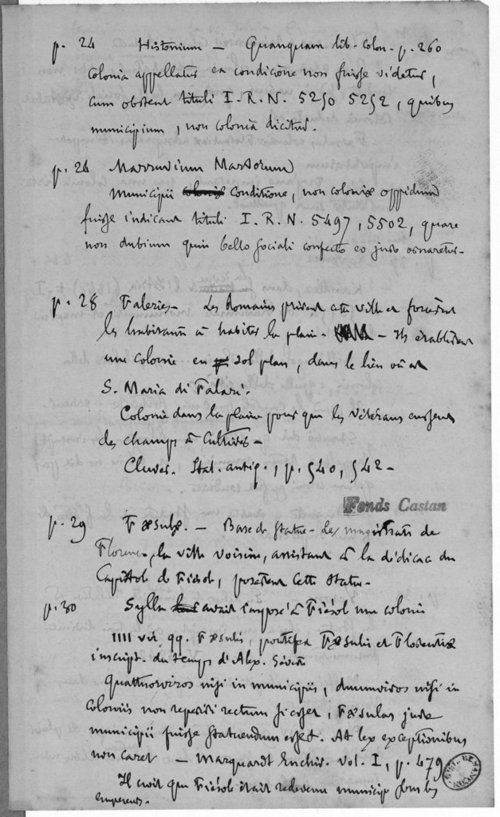 p. 24 Histonium — Quanquam lib. Colon. p. 260
Colonia appellatur ea condicione non fuisse videtur,
cum obstent tituli I. R. N. 5250 5252, quibus
municipium, non colonia dicitur.
p. 26 Marruvium Marsorum
municipii conditione, non coloniae oppidum
fuisse indicant tituli I. R. N. 5497, 5502, quare
non dubium quin bello sociali confecto eo jure
p. 28 Faleries — Les Romains prirent cette ville et forcèrent
les habitants à habiter la plaine — Ils établirent
une colonie en sol plan, dans le lieu où est
S. Maria di Falari.
Colonie dans la plaine pour que les vétérans eussent
des champs à cultiver —
Cluver. Ital. antiq., p. 540, 542 —
Fonds Castan
p. 29 Fæsulæ. — Base de statue — Les magistrats de
Florence, la ville voisine, assistant à la dédicace du
Capitole de Fiésole, posèrent cette statue —
p. 30 Sylla avait imposé à Fiésole une colonie
IIII vir qq. Fæsulis, Fæsulis et Florentiæ
inscript. du temps d'Alex. Sévère
quattuorviros nisi in municipiis, duumviros nisi in
coloniis non reperiri rectum si esset, Fæsulas jure
municipii fuisse statuendum esset. At lex exceptionibus
non caret — Marquardt Enchir. vol. I, p. 479
Il croit que Fiésole était redevenu municipe sous les
empereurs.